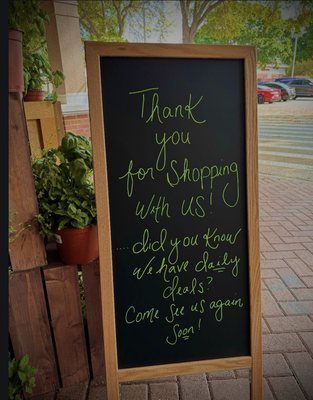 Thank
you
for Shopping
with us!
....did you know
we have daily
deals?
Come see us again
Soon!